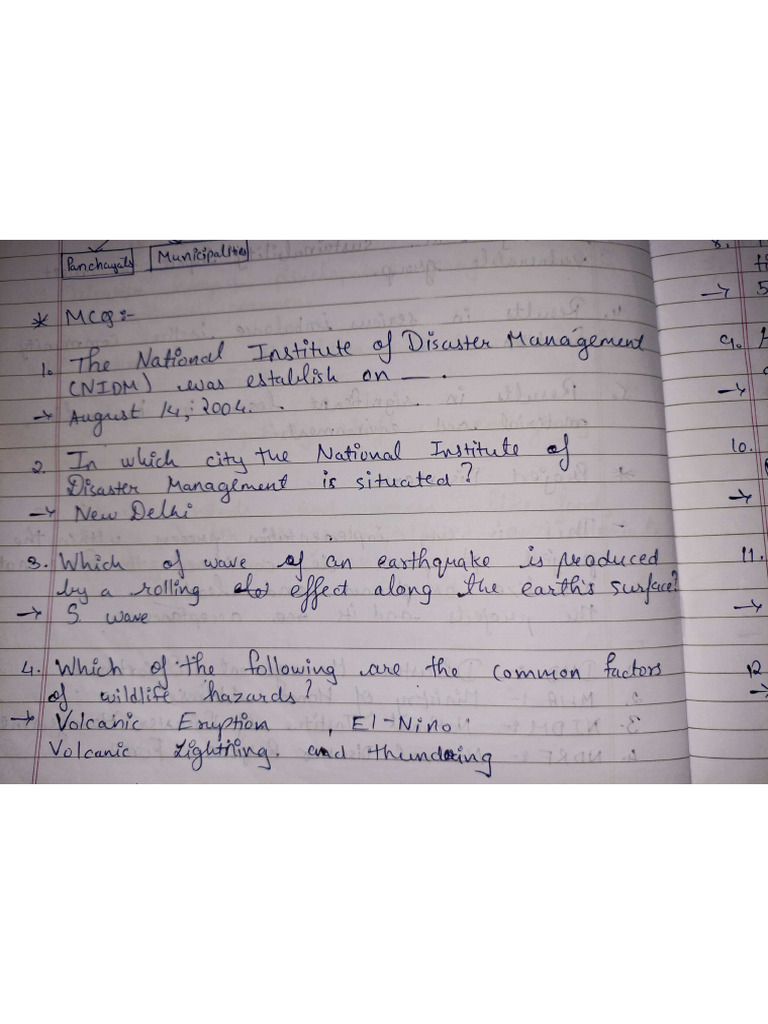 Panchayats Municipalities
* MCQs:-
1. The National Institute of Disaster Management
(NIDM) was establish on —.
→ August 14, 2004.
2. In which city the National Institute of
Disaster Management is situated?
→ New Delhi
3. Which of wave of an earthquake is produced
by a rolling effect along the earth's surface?
→ S. wave
4. Which of the following are the common factors
of wildlife hazards?
→ Volcanic Eruption, El-Nino
Volcanic Lightning and thundering
8.
→ 5
9.
→
10.
→
11.
→
12
→